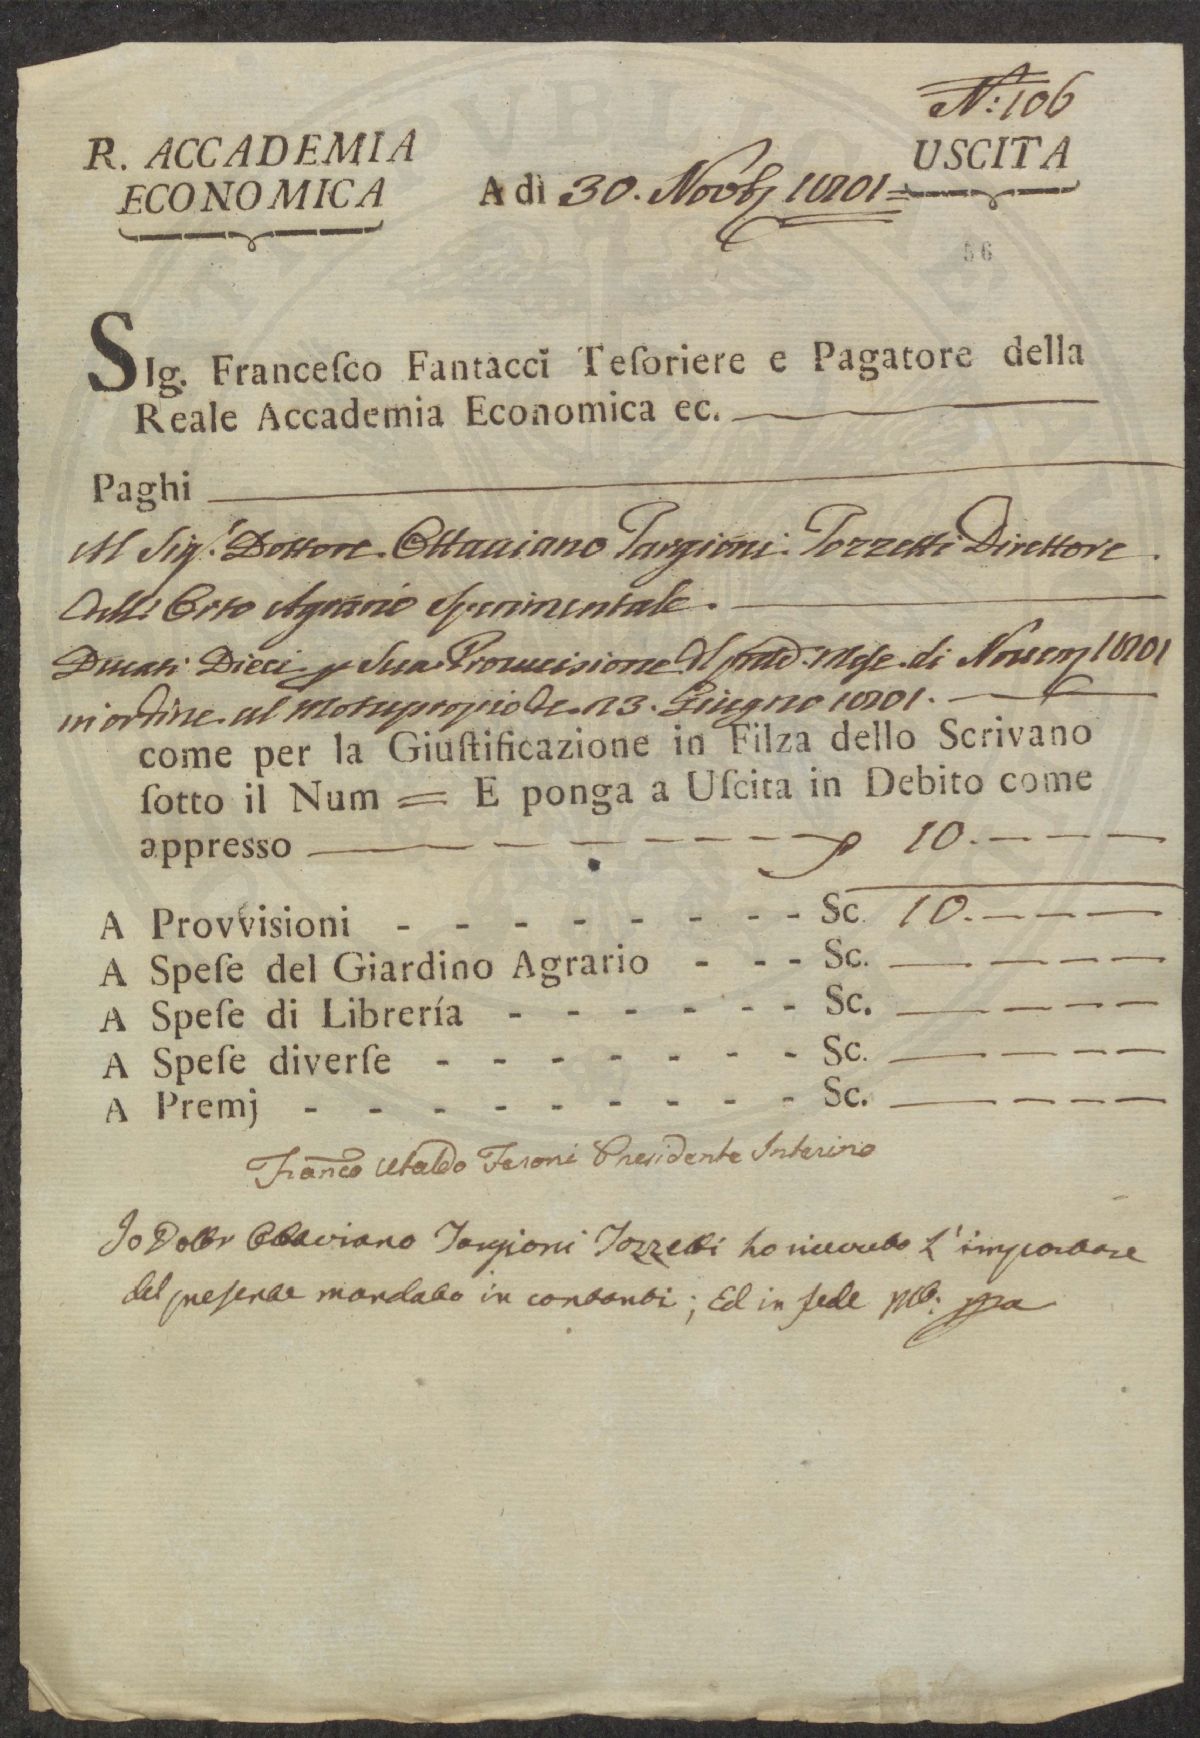 N.: 106
R. ACCADEMIA
ECONOMICA
USCITA
A dì 30. Novb. 1801=
56
SIg. Franceſco Fantacci Teſoriere e Pagatore della
Reale Accademia Economica ec.
Paghi
Al Sig.r Dottore Ottaviano Targioni Tozzetti Direttore
dell' Orto Agrario Sperimentale.
Ducati Dieci p Sua Provvisione del pred. Mese di Novem 1801
in ordine al Motuproprio de 13. Giugno 1801.
come per la Giuſtificazione in Filza dello Scrivano
ſotto il Num = E ponga a Uſcita in Debito come
appresso 10.
A Provviſioni - - - - - - - - Sc. 10.
A Speſe del Giardino Agrario - - - Sc.
A Speſe di Librería - - - - - - Sc.
A Speſe diverſe - - - - - - - Sc.
A Premj - - - - - - - - - Sc.
Franco Ubaldo Feroni Presidente Interino
Io Dottr Ottaviano Targioni Tozzetti ho ricevuto L' importare
del presente mandato in contanti; Ed in fede